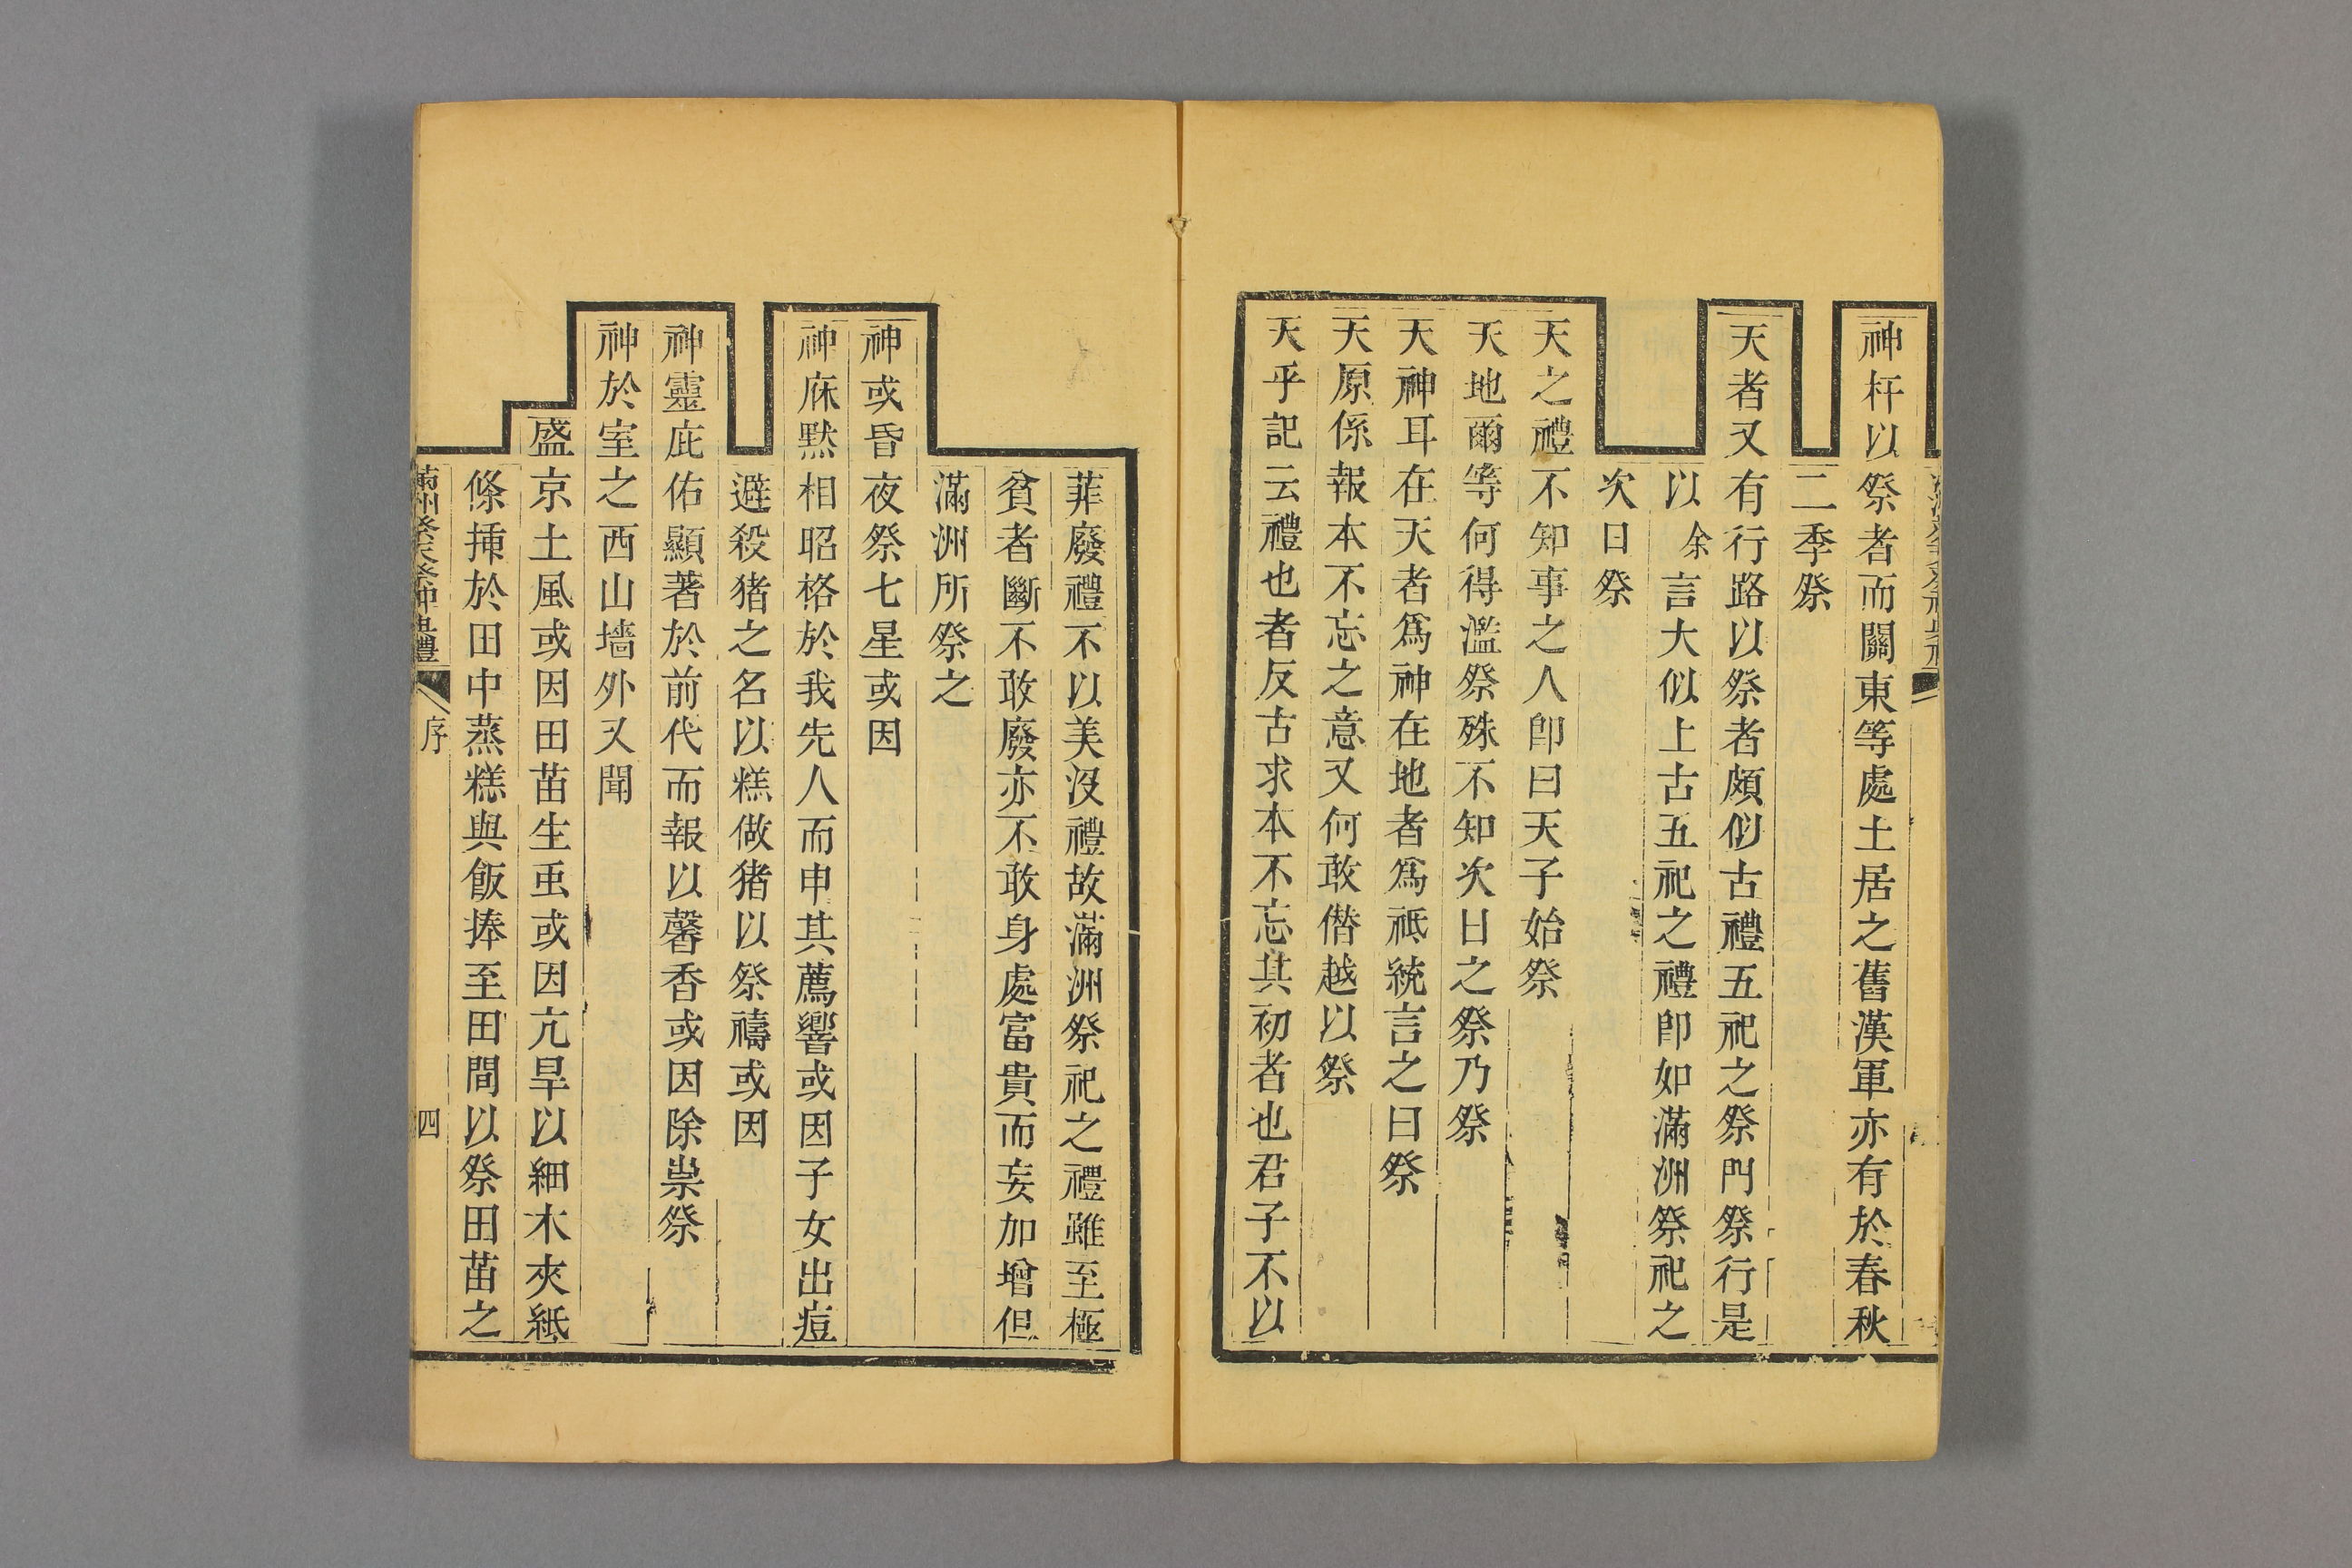 神杆以祭者而關東等處土居之舊漢軍亦有於春秋
二季祭
天者又有行路以祭者頗似古禮五祀之祭門祭行是
以余言大似上古五祀之禮卽如滿洲祭祀之
次日祭
天之禮不知事之人卽曰天子始祭
天地爾等何得濫祭殊不知次日之祭乃祭
天神耳在天者爲神在地者爲祗統言之曰祭
天原係報本不忘之意又何敢僭越以祭
天乎記云禮也者反古求本不忘其初者也君子不以
菲廢禮不以美沒禮故滿洲祭祀之禮雖至極
貧者斷不敢廢亦不敢身處富貴而妄加增但
滿洲所祭之
神或昏夜祭七星或因
神庥默相昭格於我先人而申其薦響或因子女出痘
避殺猪之名以糕做猪以祭禱或因
神靈庇佑顯著於前代而報以馨香或因除祟祭
神於室之西山墻外又聞
盛京土風或因田苗生虫或因亢旱以細木夾紙
條揷於田中蒸糕與飯捧至田間以祭田苗之
滿洲祭天祭神典禮 序 四